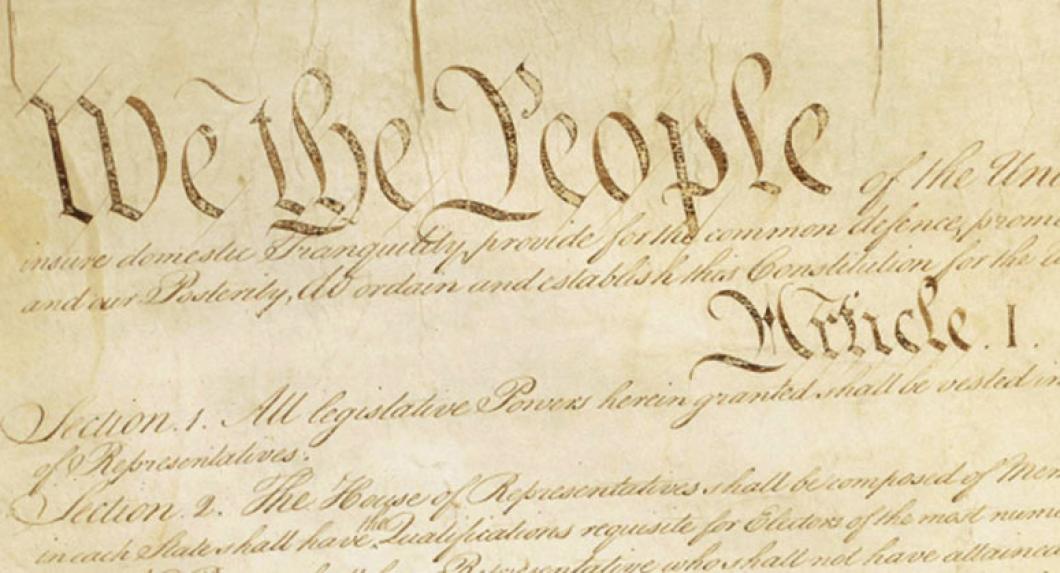 We the People of the Un
insure domestic Tranquility, provide for the common defence, prom
and our Posterity, do ordain and establish this Constitution for the
Article. I.
Section. 1. All legislative Powers herein granted shall be vested in
of Representatives.
Section. 2. The House of Representatives shall be composed of Mem
in each State shall have the Qualifications requisite for Electors of the most num
Representative who shall not have attained